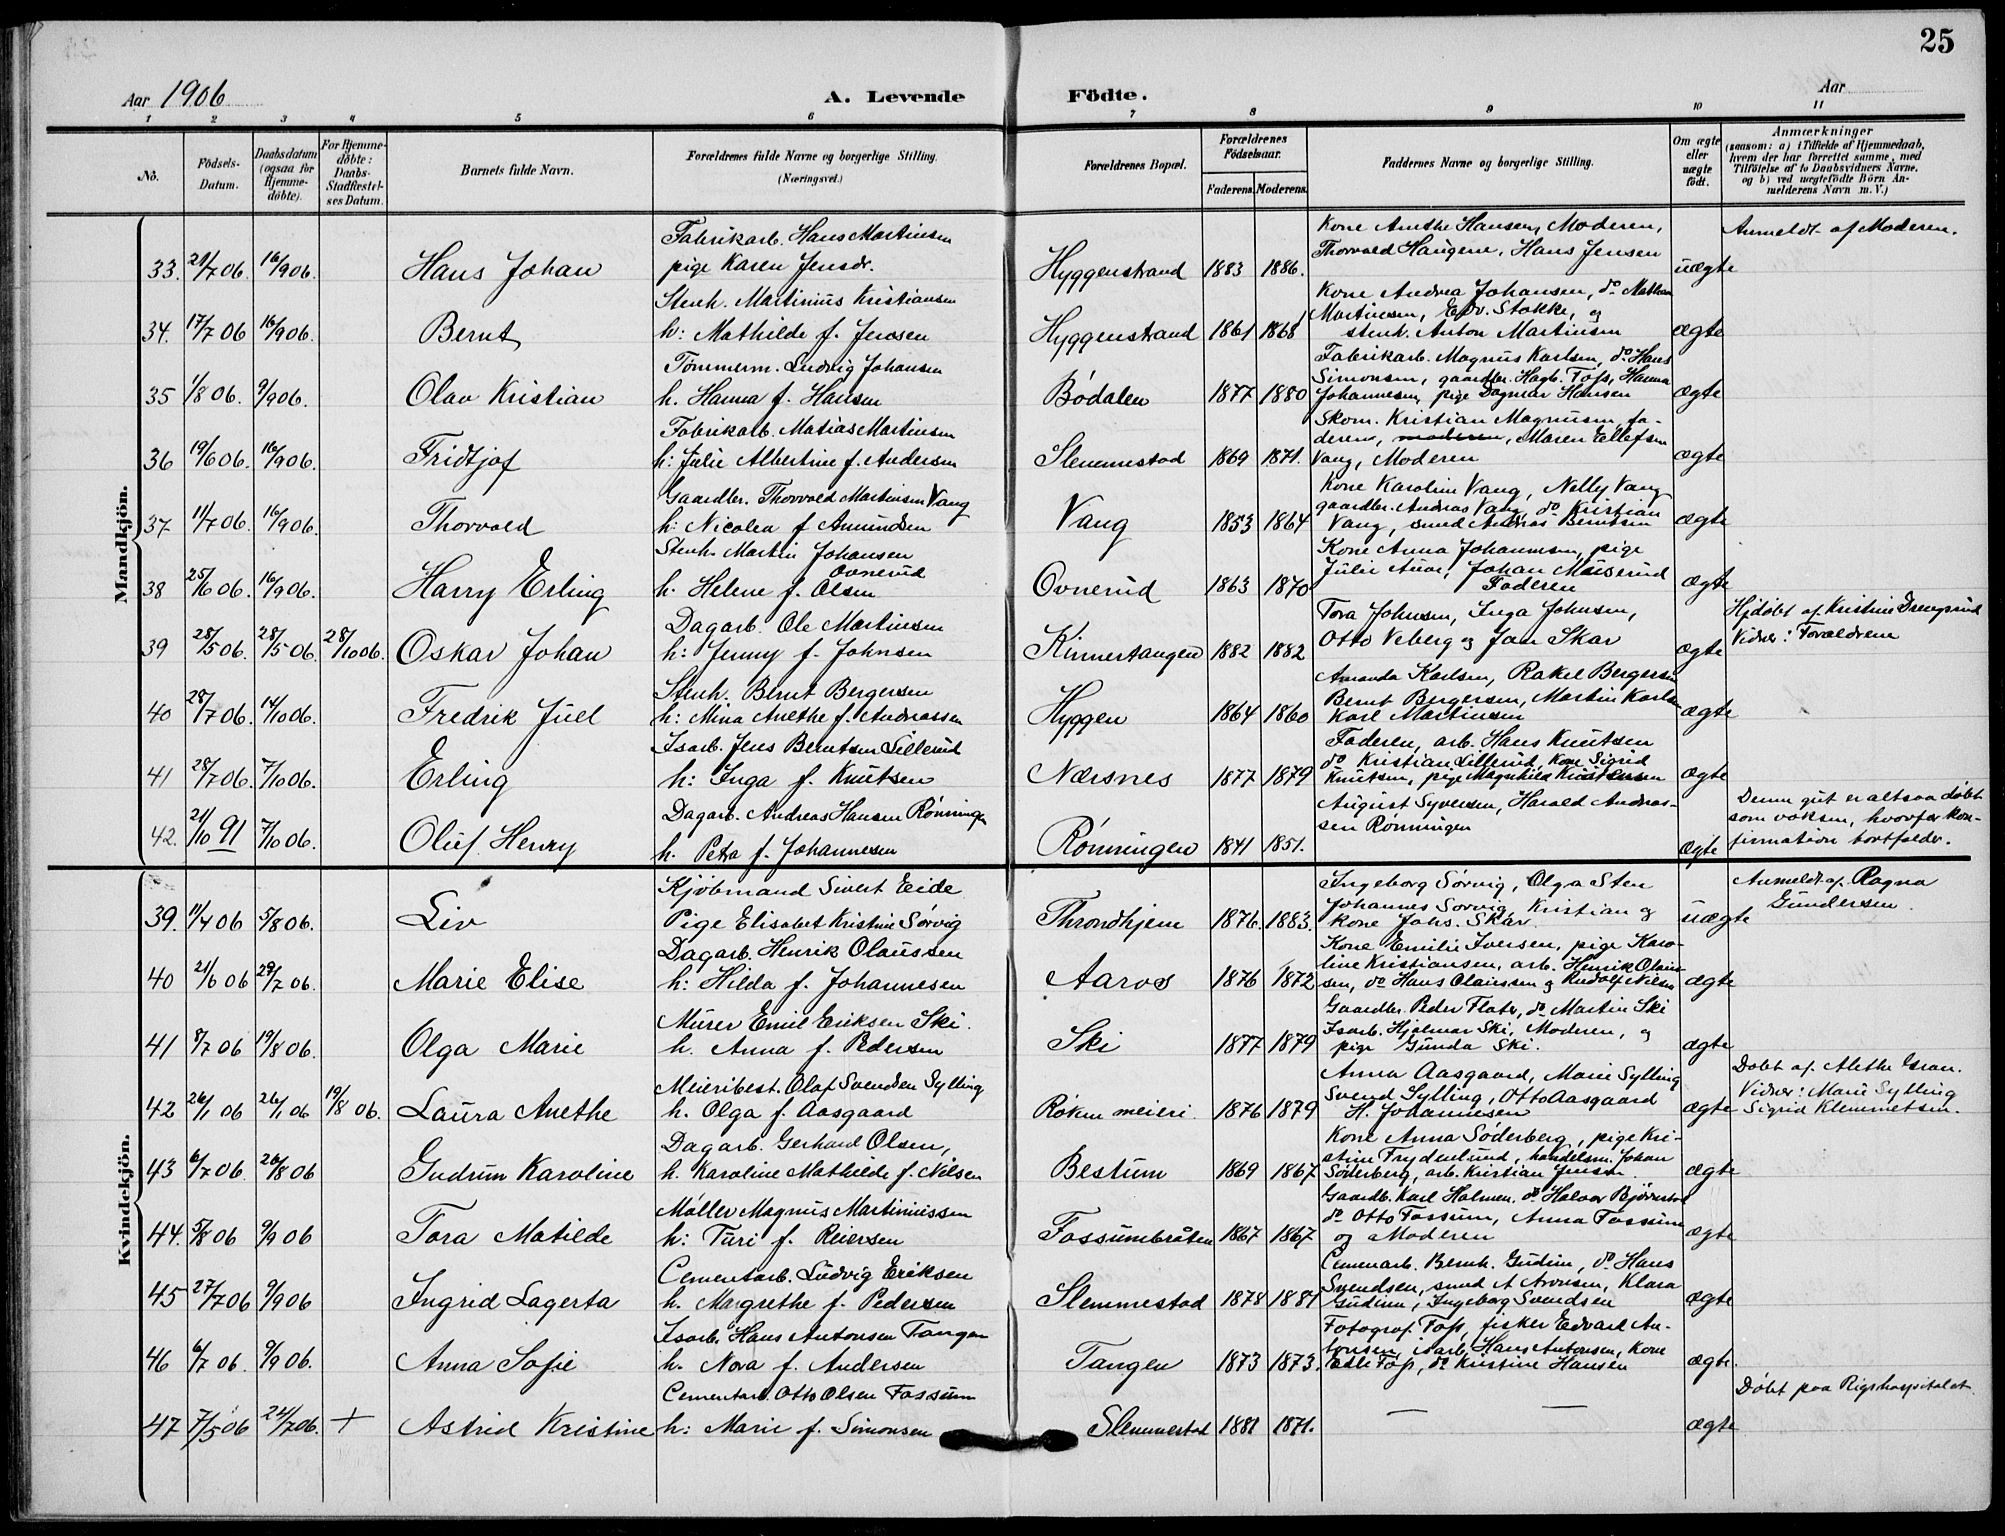 25
Aar 1906
A. Levende Födte.
Aar
1 2 3 4 5 6 7 8 9 10 11
No.
Födsels-Datum.
Daabsdatum (ogsaa for Hjemme-döbte).
For Hjemme-döbte: Daabs-Stadfæstel-ses Datum.
Barnets fulde Navn.
Forældrenes fulde Navne og borgerlige Stilling. (Næringsvei.)
Forældrenes Bopæl.
Forældrenes Födselsaar.
Faderens. Moderens.
Faddernes Navne og borgerlige Stilling.
Om ægte eller uægte födt.
Anmærkninger
(saasom: a) i Tilfælde af Hjemmedaab,
hvem der har forrettet samme, med
Tilföielse af to Daabsvidners Navne,
og b) ved uægtefödte Börn An-
melderens Navn m. V.)
Mandkjön.
Fabrikarb. Hans Martinsen
33. 21/7 06. 16/9 06. Hans Johan pige Karen Jensdr. Hyggenstrand 1883 1886. uægte
Kone Anethe Hansen, Moderen,
Thorvald Haugene, Hans Jensen
Anmeldt af Moderen.
Stenh. Martinius Kristiansen
34. 17/7 06 16/9 06. Bernt h: Mathilde f. Jensen Hyggenstrand 1861 1868 ægte
Kone Andrea Johansen, do
Martinsen, Edv. Stokke, og
stenh. Anton Martinsen
Tömmerm. Ludvig Johansen
35 1/8 06. 9/9 06. Olav Kristian h. Hanna f. Hansen Bödalen 1877 1880 ægte
Fabrikarb. Magnus Karlsen, do Hans
Simonsen, gaardbr. Hagb. Foss, Hanna
Johannesen, pige Dagmar Hansen
Fabrikarb. Matias Martinsen
36 19/6 06. 16/9 06. Fridtjof h: Julie Albertine f. Andersen Slemmestad 1869 1871. ægte
Skom. Kristian Magnusen, fa-
deren, moderen, Maren Ellefsen
Vang, Moderen
Gaardbr. Thorvald Martinsen Vang
37 11/7 06. 16/9 06. Thorvald h: Nicolea f Amundsen Vang 1853 1864 ægte
Kone Karoline Vang, Nelly Vang
gaardbr. Andreas Vang, do Kristian
Vang, smed Andreas Berntsen
Stenh. Martin Johansen
Ovnerud
38 25/6 06. 16/9 06. Harry Erling h. Helene f. Olsen Ovnerud 1863 1870 ægte
Kone Anna Johannesen, pige
Julie Auar, Johan Muserud
Faderen
Dagarb. Ole Martinsen
39 28/5 06. 28/5 06. 28/10 06. Oskar Johan h: Jenny f. Johnsen Kinnertangen 1882 1882 ægte
Tora Johnsen, Inga Johnsen,
Otto Veberg og Jan Skar
Hjdöbt af Kristine
Vidner: Forældrene
Stenh. Bernt Bergersen
40 28/7 06. 14/10 06. Fredrik Juel h: Mina Anethe f. Andreassen Hyggen 1864 1860 ægte
Amanda Karlsen, Rakel Bergersen
Bernt Bergersen, Martin Karlsen
Karl Martinsen
Isarb. Jens Berntsen Lillerud
41 28/7 06. 7/10 06. Erling h: Inga f. Knutsen Nærsnes 1877 1879 ægte
Faderen, arb. Hans Knutsen
do Kristian Lillerud, Kone Sigrid
Knutsen, pige Magnhild Kristensen
Dagarb. Andreas Hansen Rönningen
42. 21/10 91 7/10 06. Oluf Henry h. Petra f. Johannesen Rönningen 1841 1851. ægte
August Syversen, Harald Andreas-
sen Rönningen
Denne gut er altsaa döbt
som voksen, hvorfor kon-
firmation bortfalder.
Kvindekjön.
Kjöbmand Sivert Eide
39. 11/4 06 5/8 06. Liv Pige Elisabet Kristine Sörvig Throndhjem 1876. 1883. uægte
Ingeborg Sörvig, Olga Sten
Johannes Sörvig, Kristian og
kone Johs. Skar
Anmeldt af Ragna
Gundersen.
Dagarb. Henrik Olaussen
40 21/6 06 29/7 06. Marie Elise h: Hilda f. Johannesen Aaros 1876 1872 ægte
Kone Emilie Iversen, pige Karo-
line Kristiansen, arb. Henrik Olaus-
sen, do Hans Olaussen og Rudolf Nilsen
Murer Emil Eriksen Ski.
41 8/7 06 19/8 06. Olga Marie h. Anna f. Pedersen Ski 1877 1879 ægte
Gaardbr. Peder Flato, do Martin Ski
Isarb. Hjalmar Ski, Moderen, og
pige Gunda Ski.
Meieribest. Olaf Svendsen Sylling
42 26/1 06 26/1 06 19/8 06. Laura Anethe h. Olga f. Aasgaard Röken meieri 1876 1879 ægte
Anna Aasgaard, Marie Sylling
Svend Sylling, Otto Aasgaard
H. Johannesen
Döbt af Alethe Gran.
Vidner: Marie Sylling
Sigrid Klemmetsen.
Dagarb. Gerhard Olsen,
43 6/7 06. 26/8 06 Gudrun Karoline h. Karoline Mathilde f. Nilsen Bestum 1869 1867 ægte
Kone Anna Söderberg, pige Kri-
stine Frydenlund, handelsm. Johan
Söderberg, arb. Kristian Jensen
Möller Magnus Martiniussen
44. 5/8 06 9/9 06 Tora Matilde h: Turi f. Reiersen Fossumbråten 1867 1867 ægte
Gaardb. Karl Holmen, do Halvor
do Otto Fossum, Anna Fossum
og Moderen
Cementarb. Ludvig Eriksen
45 27/7 06 9/9 06 Ingrid Lagerta h. Margrethe f. Pedersen Slemmestad 1878 1881 ægte
Cemenarb. Bernh. Gudim, do Hans
Svendsen, smed A Aronsen, Klara
Gudim, Ingeborg Svendsen
Isarb. Hans Antonsen Tangen
46 6/7 06. 9/9 06. Anna Sofie h. Nora f. Andersen Tangen 1873 1873. ægte.
Fotograf. Foss, fisker Edvard An-
tonsen, isarb. Hans Antonsen, Kone
Foss, do Kristine Hansen
Cementarb. Otto Olsen Fossum
47 7/5 06 24/7 06. + Astrid Kristine h: Marie f. Simonsen Slemmestad 1881 1871. — — ægte
Döbt paa Rigshospitalet